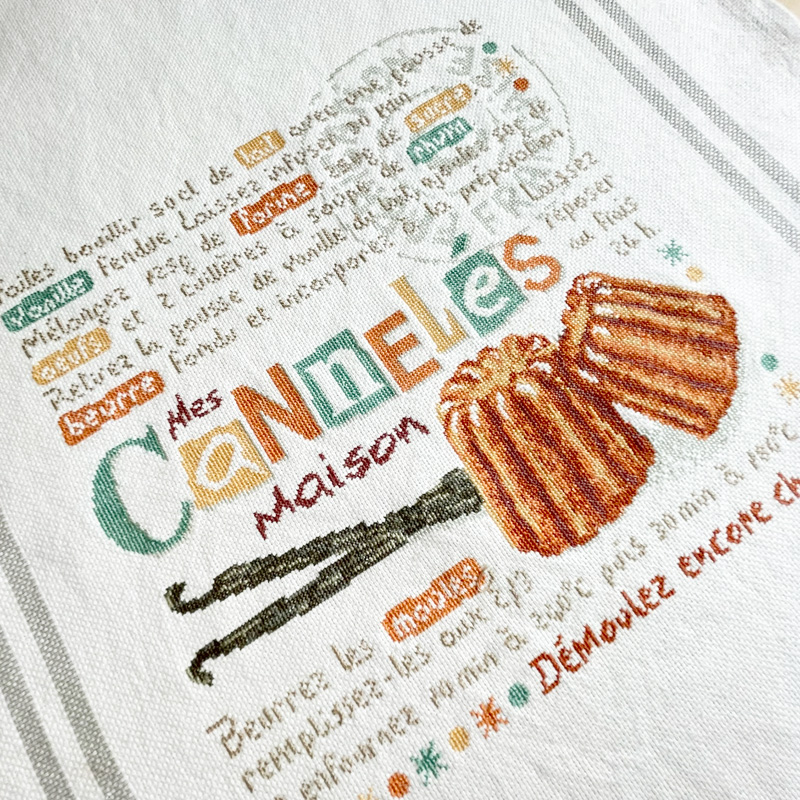 Faites bouillir 50cl de lait avec une gousse de
vanille fendue. Laissez infuser
Mélangez 125g de farine de sucre
oeufs et 2 cuillères à soupe de rhum
Retirez la gousse de vanille du lait, ajoutez 50g de
beurre fondu et incorporez à la préparation
Laissez
reposer
au frais
24 h.
Mes
CaNnELéS
Maison
Beurrez les moules
remplissez-les aux 2/3
enfournez 10 min à 240°C puis 30 min à 180°C
Démoulez encore ch